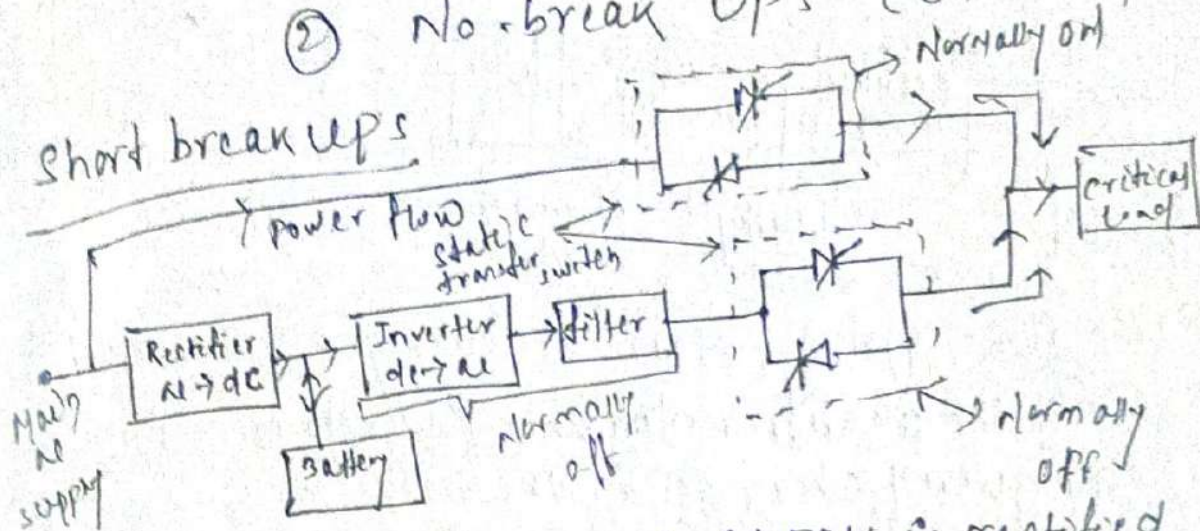 ② No-break UPS
Normally on
Short break UPS
power flow
static
transfer switch
critical
load
Rectifier
ac → dc
Inverter
dc → ac
filter
Main
ac
supply
Battery
Normally
off
Normally
off
rectified